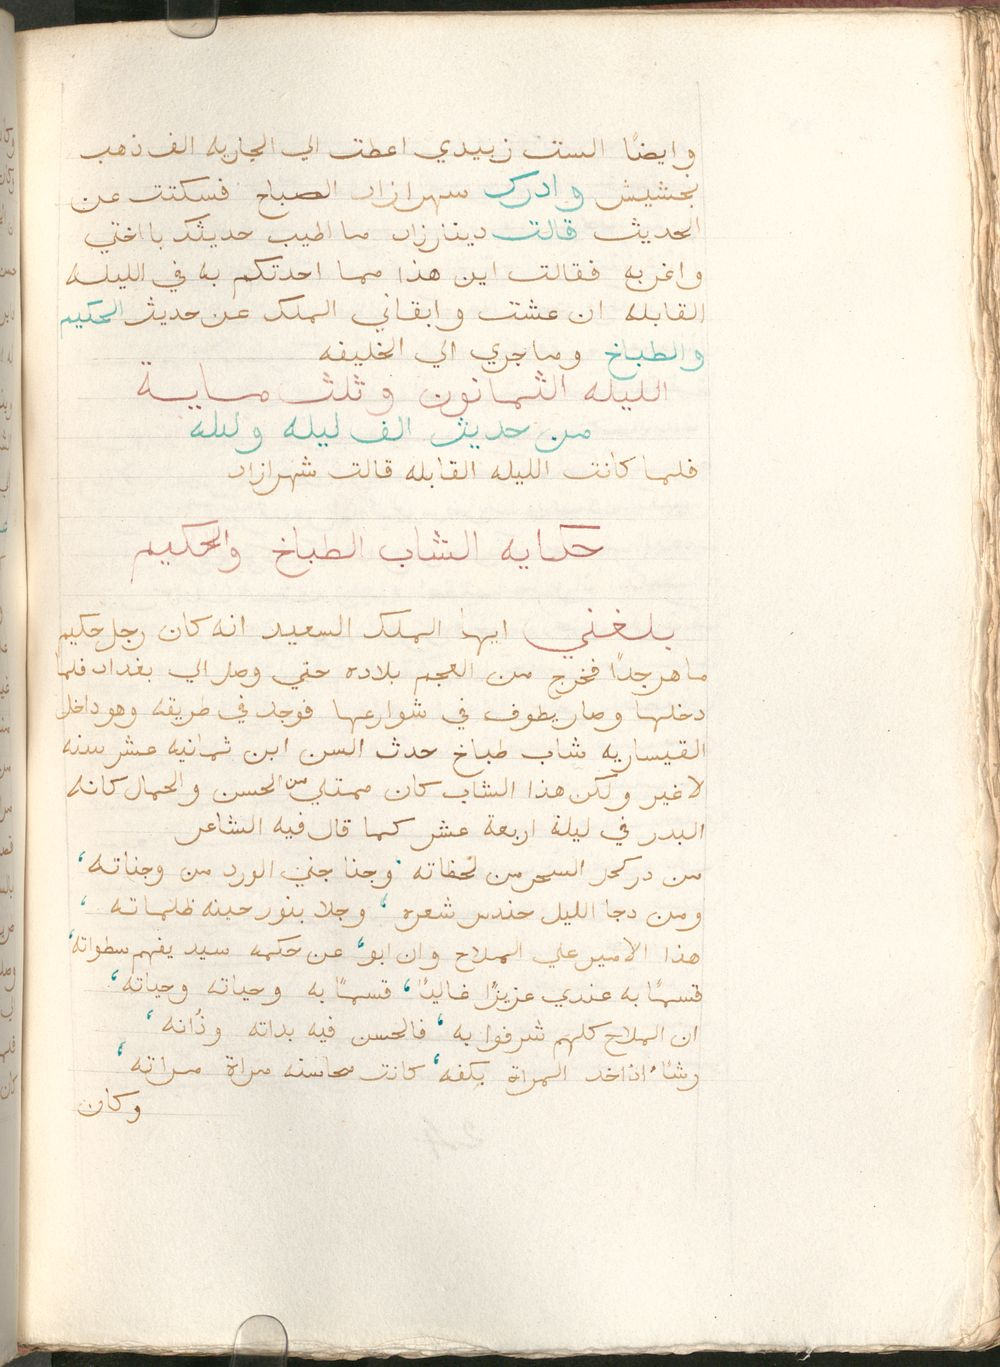 وايضًا الست زبيدي اعطت الي الجاريه الف ذهب
بخشيش وادرك سهرازاد الصباح فسكتت عن
الحديث قالت دينارزاد ما اطيب حديثك يا اختي
واغربه فقالت اين هذا مما احدتكم به في الليله
القابله ان عشت وابقاني الملك عن حديث الحكيم
والطباخ وماجري الي الخليفه
الليله الثمانون وثلث ماية
من حديث الف ليله وليله
فلما كانت الليله القابله قالت شهرازاد
حكايه الشاب الطباخ والحكيم
بلغني ايها الملك السعيد انه كان رجل حكيم
ماهر جدًا فخرج من العجم بلاده حتي وصل الي بغداد فلما
دخلها وصار يطوف في شوارعها فوجد في طريقه وهو داخل
القيساريه شاب طباخ حدث السن ابن ثمانيه عشر سنه
لاغير ولكن هذا الشاب كان ممتلي من الحسن والجمال كانه
البدر في ليلة اربعة عشر كما قال فيه الشاعر
من در كحل السحر من لحظاته وجنا جني الورد من وجناته
ومن دجا الليل حندس شعره وجلا بنور جبينه ظلماته
هذا الامير علي الملاح وان ابو عن حكمه سيد يفهم سطواته
قسمًا به عندي عزيزًا غاليًا قسمًا به وحياته وحياته
ان الملاح كلهم شرفوا به فالحسن فيه بداته وذانه
رشًا اذا اخد المراة بكفه كانت محاسنه مراة مراته
وكان